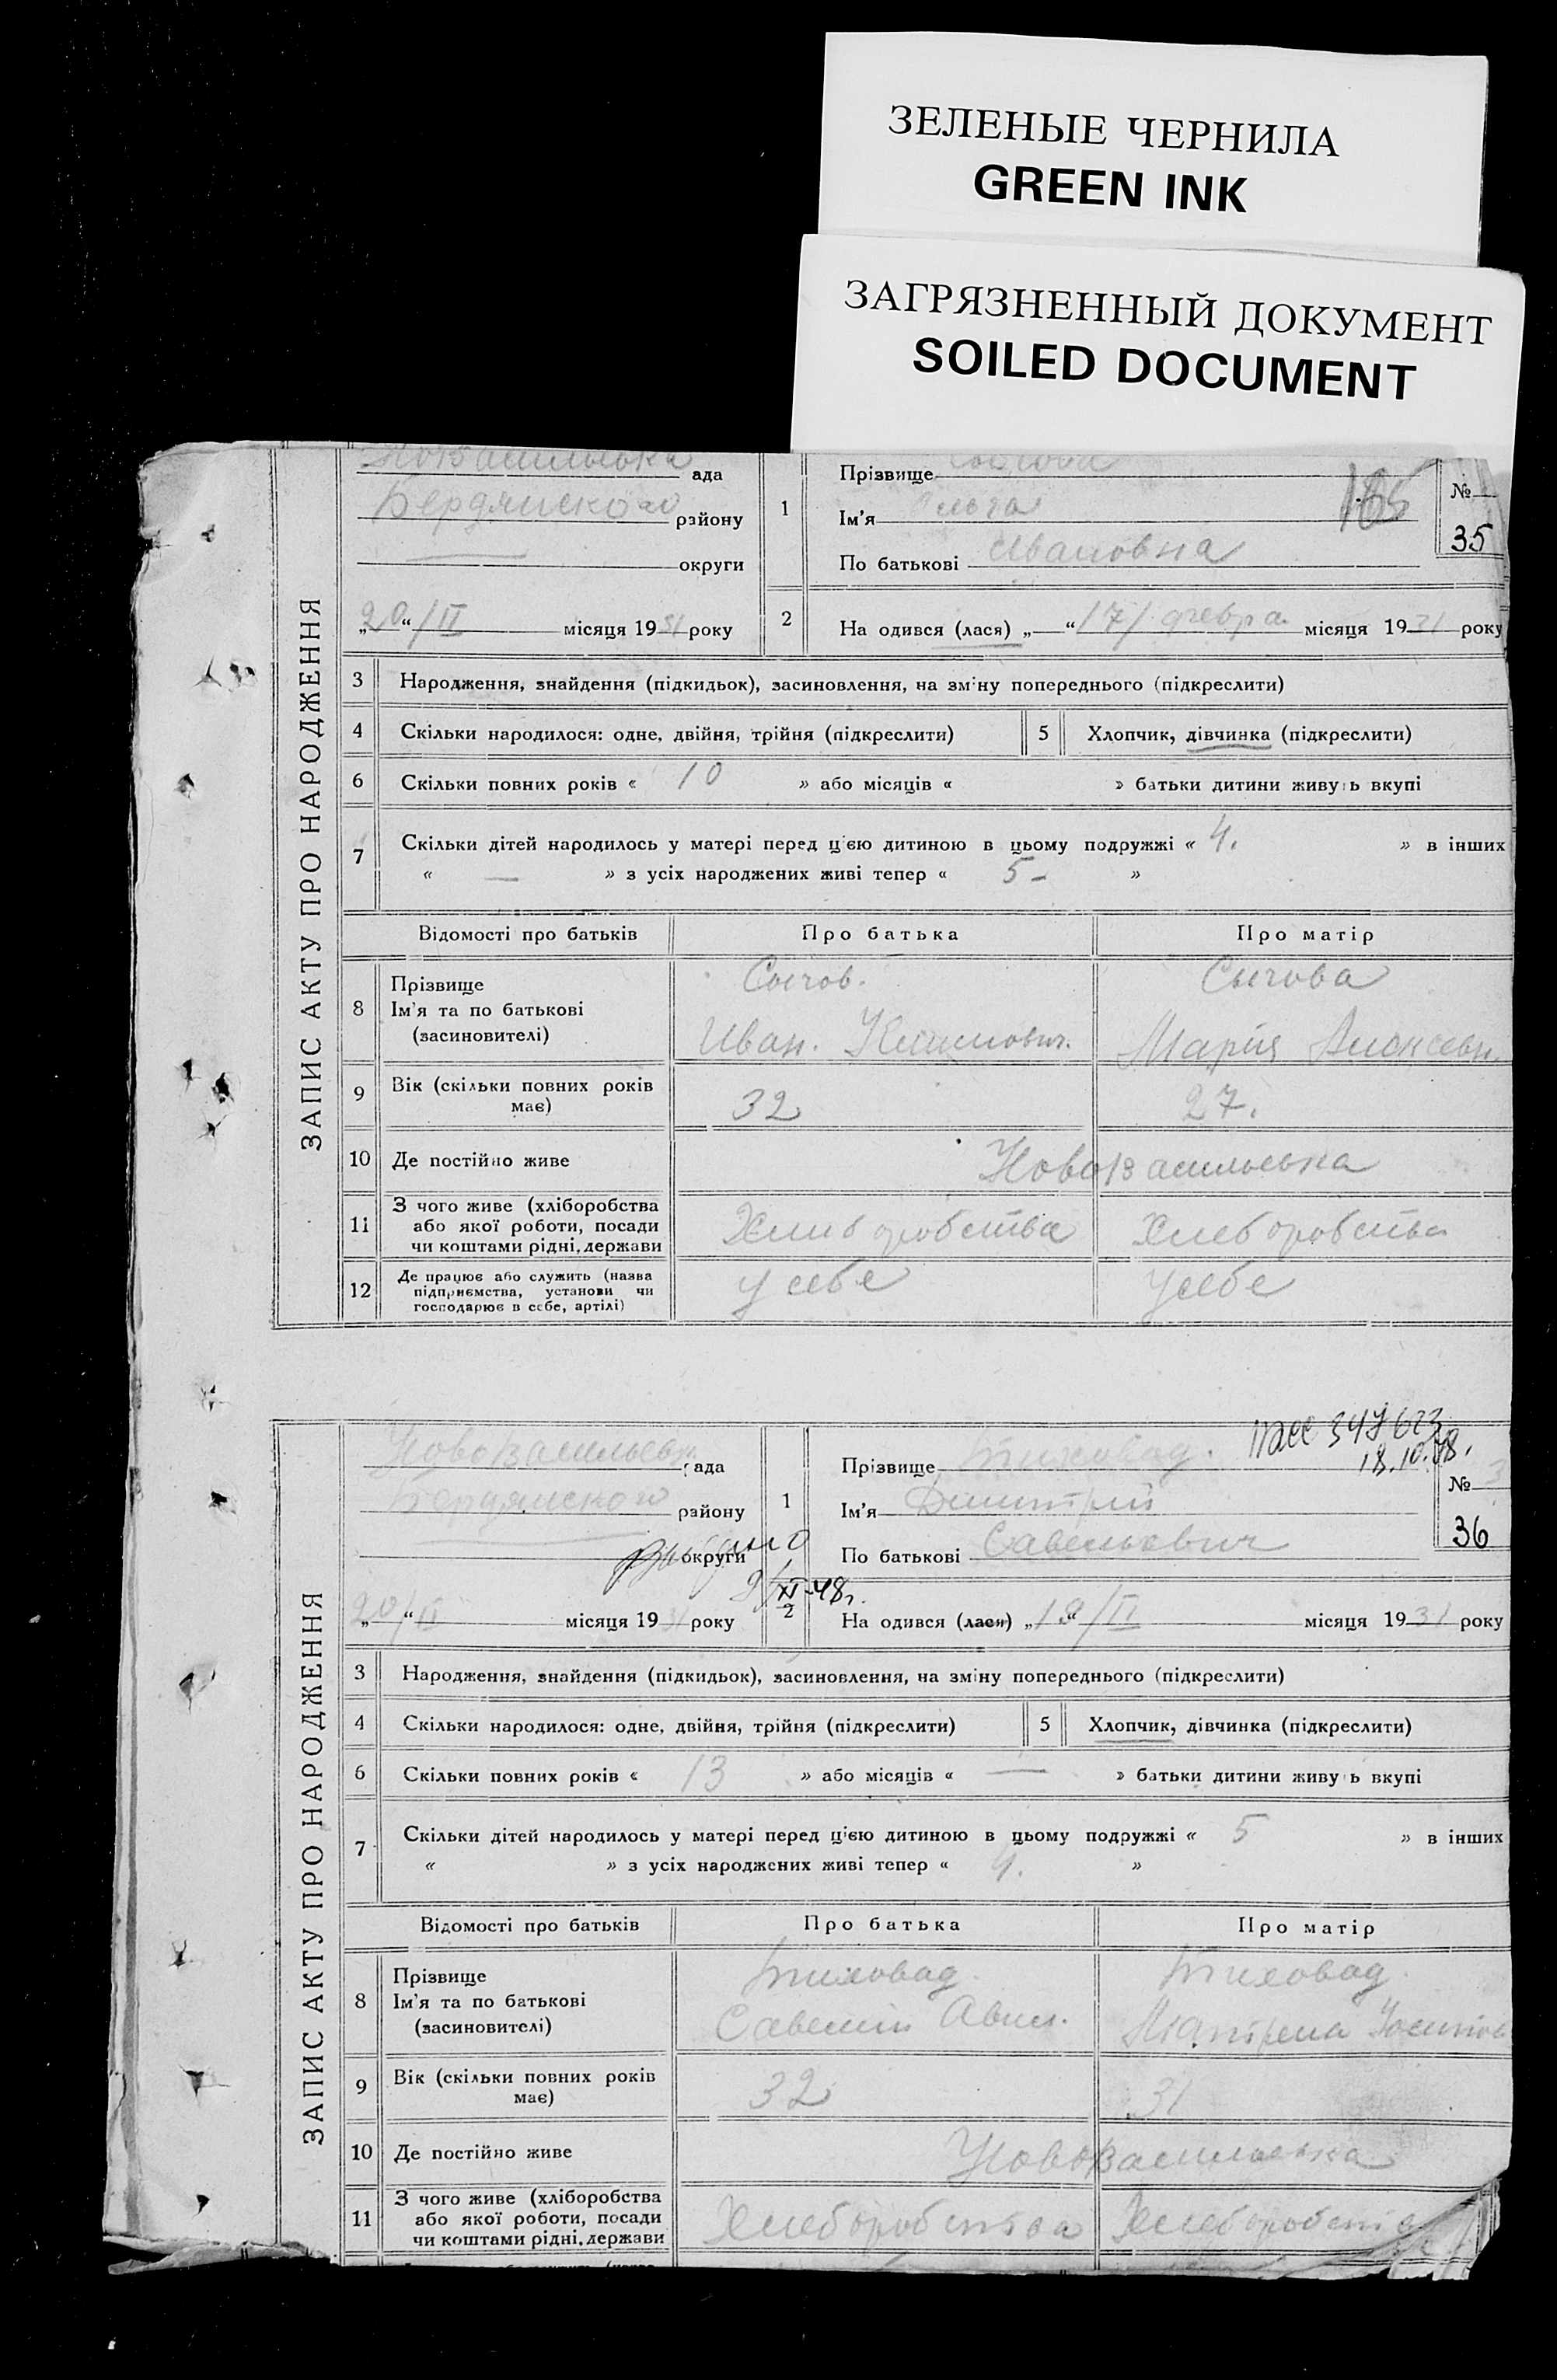 ЗЕЛЕНЫЕ ЧЕРНИЛА
GREEN INK
ЗАГРЯЗНЕННЫЙ ДОКУМЕНТ
SOILED DOCUMENT
ЗАПИС АКТУ ПРО НАРОДЖЕННЯ
ада
Бердянского району
округи
„20“/II місяця 1931 року
1
Прізвище
Ім'я Ольга
По батькові Ивановна
165
№
35
2
На одився (лася) „—“ 17/ февра. місяця 1931 року
3 Народження, знайдення (підкидьок), засиновлення, на зміну попереднього (підкреслити)
4 Скільки народилося: одне, двійня, трійня (підкреслити) 5 Хлопчик, дівчинка (підкреслити)
6 Скільки повних років « 10 » або місяців « » батьки дитини живуть вкупі
7 Скільки дітей народилось у матері перед цією дитиною в цьому подружжі « 4. » в інших
« — » з усіх народжених живі тепер « 5- »
Відомості про батьків Про батька Про матір
8 Прізвище Сычов. Сычова
Ім'я та по батькові
(засиновителі) Иван. Климович. Мария
9 Вік (скільки повних років має) 32 27.
10 Де постійно живе НовоВасильевка
11 З чого живе (хліборобства
або якої роботи, посади
чи коштами рідні, держави Хлиборобства Хлеборобства
12 Де працює або служить (назва
підприємства, установи чи
господарює в себе, артілі) у себе у себе
ЗАПИС АКТУ ПРО НАРОДЖЕННЯ
рада
Бердянского району
округи
„20“/II місяця 1931 року
Выдано
1
Прізвище
Ім'я Дмитрий
По батькові Савельевич
347623
18.10.48.
№ 3
36
2
XI-48г.
На одився (лася) „ “ /II місяця 1931 року
3 Народження, знайдення (підкидьок), засиновлення, на зміну попереднього (підкреслити)
4 Скільки народилося: одне, двійня, трійня (підкреслити) 5 Хлопчик, дівчинка (підкреслити)
6 Скільки повних років « 13 » або місяців « — » батьки дитини живуть вкупі
7 Скільки дітей народилось у матері перед цією дитиною в цьому подружжі « 5 » в інших
« » з усіх народжених живі тепер « 4. »
Відомості про батьків Про батька Про матір
8 Прізвище
Ім'я та по батькові
(засиновителі) Савелий
9 Вік (скільки повних років має) 32 31
10 Де постійно живе НовоВасильевка
11 З чого живе (хліборобства
або якої роботи, посади
чи коштами рідні, держави Хлеборобства